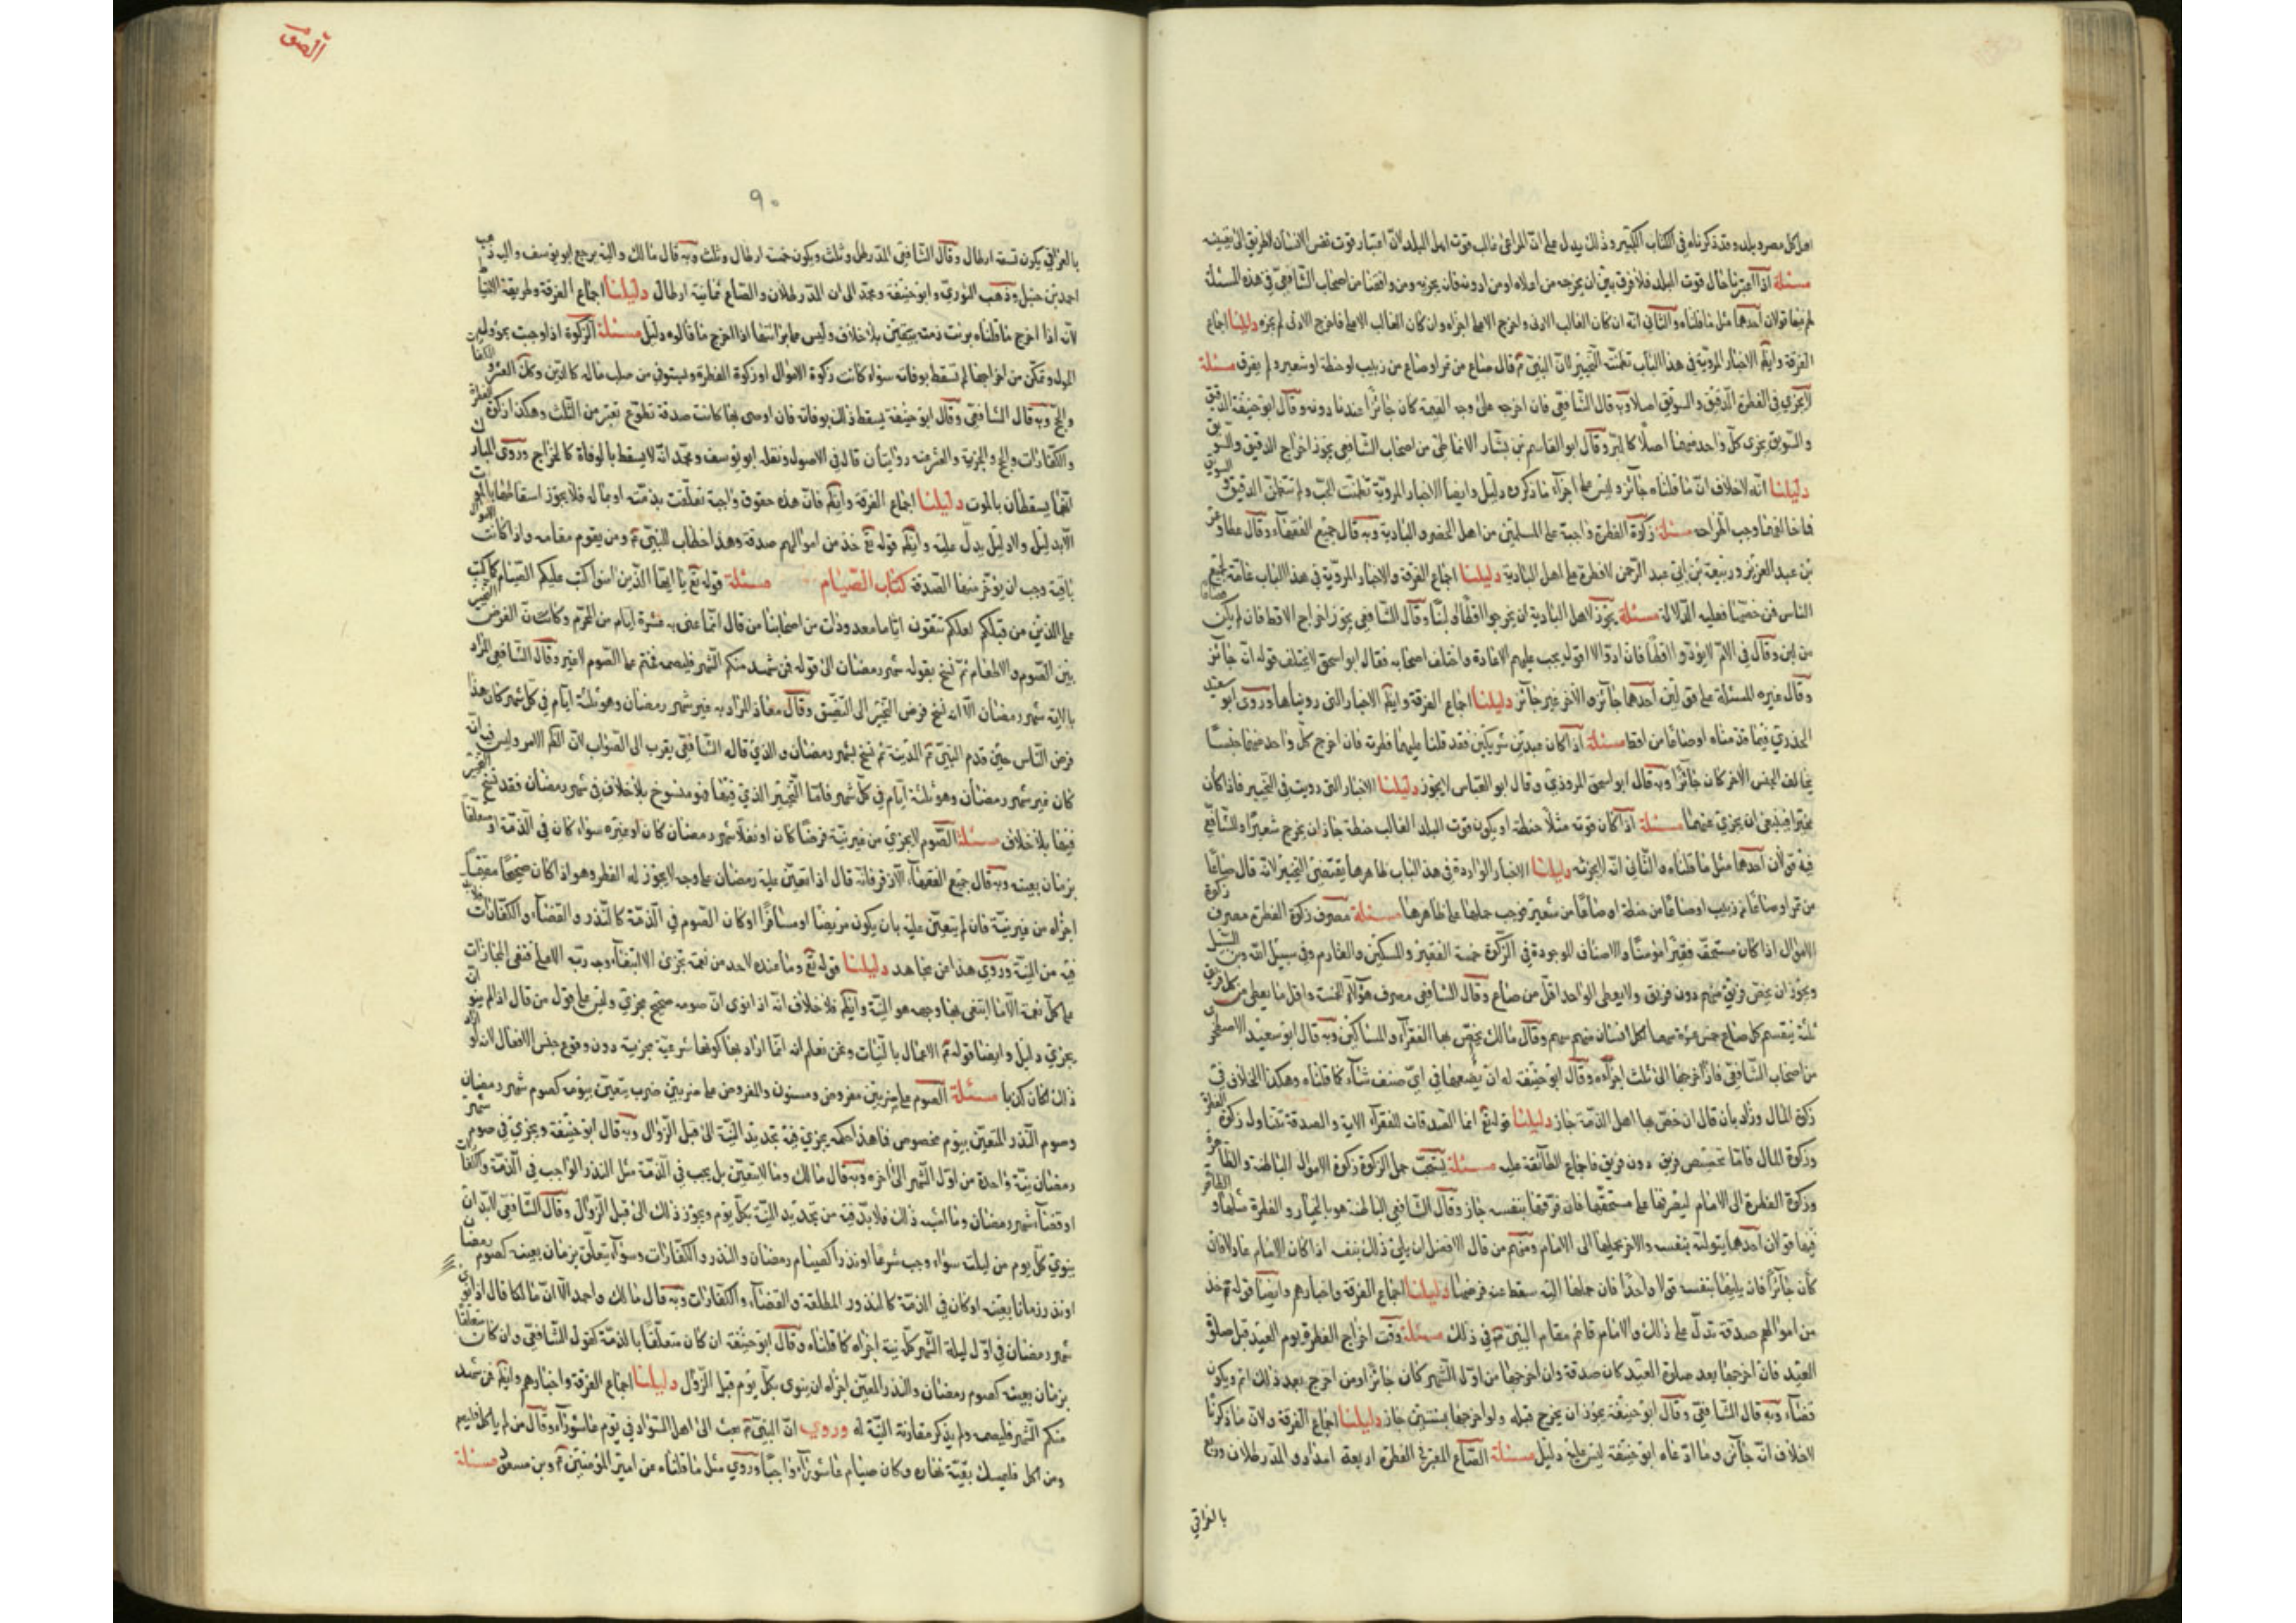 اهل كل مصر وبلد وقد ذكرناه في الكتاب الكبير وذلك يدل على ان المراعى غالب قوت اهل البلد لان اعتبار قوت نفس الانسان لا طريق الى تعيينه
مسئلة اذا اعتبرنا غالب قوت البلد فلا فرق بين ان يخرجه من اعلاه او من ادونه فان يجزيه ومن وافقنا من اصحاب الشافعي في هذه المسئلة
لهم فيها قولان احدهما مثل ما قلناه والثاني انه ان كان الغالب الادنى واخرج الاعلى اجزاه وان كان الغالب الاعلى فاخرج الادنى لم يجزه دليلنا اجماع
الفرقة وايضا الاخبار المروية في هذا الباب تضمنت التخيير لان النبي قال صاع من تمر او صاع من زبيب او حنطة او شعير ولم يفرق مسئلة
لا يجزي في الفطرة الدقيق والسويق اصلا وبه قال الشافعي فان اخرجه على وجه القيمة كان جائزا عندنا دونه وقال ابو حنيفة الدقيق
والسويق يجزي كل واحد منهما اصلا كالبر وقال ابو القاسم بن بشار الانماطي من اصحاب الشافعي يجوز اخراج الدقيق والسويق
دليلنا انه لا خلاف ان ما قلناه جائز وليس على اجزاء ما ذكروه دليل وايضا الاخبار المروية تضمنت الحب ولم تتضمن الدقيق والسويق
فما خالفها وجب اطراحه مسئلة زكوة الفطرة واجبة على المسلمين من اهل الحضر والبادية وبه قال جميع الفقهاء وقال عطا وعمر
بن عبد العزيز وربيعة بن ابي عبد الرحمن لا فطرة على اهل البادية دليلنا اجماع الفرقة والاخبار المروية في هذا الباب عامة لجميع
الناس فمن خصها فعليه الدلالة مسئلة يجوز لاهل البادية ان يخرجوا اقطا او لبنا وقال الشافعي يجوز اخراج الاقط فان لم يكن
من لبن وقال في الام لا يؤدوا اقطا فان ادوا لا اقول يجب عليهم الاعادة واختلف اصحابه فقال ابو اسحق لا يختلف قوله انه جائز
وقال غيره المسئلة على قولين احدهما جائز والآخر غير جائز دليلنا اجماع الفرقة وايضا الاخبار التي رويناها وروى ابو سعيد
الخدري فيما قدمناه او صاعا من اقط مسئلة اذا كان عبد بين شريكين فقد قلنا عليهما فطرته فان اخرج كل واحد منهما جنسا
يخالف الجنس الآخر كان جائزا وبه قال ابو اسحق المروذي وقال ابو العباس لا يجوز دليلنا الاخبار التي رويت في التخيير فاذا كان
مخيرا فينبغي ان يجزي عنهما مسئلة اذا كان قوته مثلا حنطة او يكون قوت البلد الغالب حنطة جاز ان يخرج شعيرا وللشافعي
فيه قولان احدهما مثل ما قلناه والثاني انه لا يجزئه دليلنا الاخبار الواردة في هذا الباب ظاهرها يقتضي التخيير لانه قال صاعا
من تمر او صاعا من زبيب او صاعا من حنطة او صاعا من شعير فوجب حملها على ظاهرها مسئلة مصرف زكوة الفطرة مصرف زكوة
الاموال اذا كان مستحقه فقيرا مؤمنا والاصناف الموجودة في الزكوة خمسة الفقير والمسكين والغارم وفي سبيل الله وبن السبيل
ويجوز ان يخص فريق منهم دون فريق ولا يعطى الواحد اقل من صاع وقال الشافعي مصرف هؤلاء الخمسة واقل ما يعطى من كل فريق
ثلثة يقسم كل صاع خمس عشرة سهما لكل انسان منهم سهم وقال مالك يخص بها الفقراء والمساكين وبه قال ابو سعيد الاصطخري
من اصحاب الشافعي فاذا اخرجها الى ثلث اجزأه وقال ابو حنيفة له ان يضعها في اي صنف شاء كما قلناه وهكذا الخلاف في
زكوة المال وزاد بان قال ان خص بها اهل الذمة جاز دليلنا قوله تع انما الصدقات للفقراء الاية والصدقة تتناول زكوة الفطرة
وزكوة المال فاما تخصيص فريق دون فريق فاجماع الطائفة عليه مسئلة يستحب حمل الزكوة زكوة الاموال الباطنة والظاهرة
وزكوة الفطرة الى الامام ليصرفها على مستحقها فان فرقها بنفسه جاز وقال الشافعي الباطنة هو بالخيار والفطرة مثلها والظاهرة
فيها قولان احدهما يتولاه بنفسه والاخر يحملها الى الامام ومنهم من قال الافضل ان يلي ذلك بنفسه اذا كان الامام عادلا فان
كان جائرا فان يليها بنفسه قولا واحدا فان حملها اليه سقط عنه فرضها دليلنا اجماع الفرقة واخبارهم وايضا قوله تع خذ
من اموالهم صدقة تدل على ذلك والامام قائم مقام النبي في ذلك مسئلة وقت اخراج الفطرة يوم العيد قبل صلوة
العيد فان اخرجها بعد صلوة العيد كان صدقة وان اخرجها من اول الشهر كان جائزا ومن اخرج بعد ذلك اثم ويكون
قضاء وبه قال الشافعي وقال ابو حنيفة يجوز ان يخرج قبله ولو اخرجها بسنتين جاز دليلنا اجماع الفرقة ولان ما ذكرنا
لا خلاف انه جائز وما ادعاه ابو حنيفة ليس عليه دليل مسئلة الصاع المعتبر في الفطرة اربعة امداد والمد رطلان وربع
بالعراقي
الصوم
٩٠
بالعراقي يكون تسعة ارطال وقال الشافعي المد رطل وثلث ويكون خمسة ارطال وثلث وبه قال مالك واليه رجع ابو يوسف واليه ذهب
احمد بن حنبل وذهب الثوري وابو حنيفة ومحمد الى ان المد رطلان والصاع ثمانية ارطال دليلنا اجماع الفرقة وطريقة الاحتياط
لانه اذا اخرج ما قلناه برئت ذمته بيقين بلا خلاف وليس على برائتها اذا اخرج ما قالوه دليل مسئلة الزكوة اذا وجبت بحؤول
الحول وتمكن من اخراجها لم تسقط بوفاته سواء كانت زكوة الاموال او زكوة الفطرة ويستوفي من صلب ماله كالدين وكذلك العشر والكفارات
والحج وبه قال الشافعي وقال ابو حنيفة يسقط ذلك بوفاته فان اوصى بها كانت صدقة تطوع تعتبر من الثلث وهكذا زكوة الفطرة
والكفارات والحج والجزية والعشر فيه روايتان قال في الاصول ونقله ابو يوسف ومحمد انه لا يسقط بالوفاة كالخراج وروى ابن المبارك
انهما يسقطان بالموت دليلنا اجماع الفرقة وايضا فان هذه حقوق واجبة تعلقت بذمته او بماله فلا يجوز اسقاطها بالموت
الا بدليل ولا دليل يدل عليه وايضا قوله تع خذ من اموالهم صدقة وهذا خطاب للنبي ومن يقوم مقامه واذا كانت الاموال
باقية وجب ان يؤخذ منها الصدقة كتاب الصيام مسئلة قوله تع يا ايها الذين امنوا كتب عليكم الصيام كما كتب
على الذين من قبلكم لعلكم تتقون اياما معدودات من اصحابنا من قال انما عنى به عشرة ايام من المحرم وكان الفرض التخيير
بين الصوم والاطعام ثم نسخ بقوله شهر رمضان الى قوله فمن شهد منكم الشهر فليصمه فحتم على الصوم لا غير وقال الشافعي المراد
بالاية شهر رمضان الا انه نسخ فرض التخيير الى التضييق وقال معاذ المراد به غير شهر رمضان وهو ثلثة ايام في كل شهر كان هذا
فرض الناس حين قدم النبي المدينة ثم نسخ بشهر رمضان والذي قاله الشافعي يقرب الى الصواب لان الحكم الامر وليس فيه انه
كان غير شهر رمضان وهو ثلثة ايام في كل شهر فاما التخيير الذي فيها فهو منسوخ بلا خلاف في شهر رمضان فقد نسخ التخيير
فيها بلا خلاف مسئلة الصوم لا يجزي من غير نية فرضا كان او نفلا شهر رمضان كان او غيره سواء كان في الذمة او متعلقا
بزمان بعينه وبه قال جميع الفقهاء الا زفر فانه قال اذا تعين عليه رمضان على وجه لا يجوز له الفطر وهو اذا كان صحيحا مقيما
اجزاه من غير نية فان لم يتعين عليه بان يكون مريضا او مسافرا او كان الصوم في الذمة كالنذر والقضاء والكفارات فلا بد
فيه من النية وروي هذا عن مجاهد دليلنا قوله تع وما عنده لاحد من نعمة تجزى الا ابتغاء وجه ربه الاعلى فنفى المجازات
على كل نعمة الا ما ابتغى بها وجهه هو النية وايضا فلا خلاف انه اذا نوى ان صومه صحيح مجزي وليس على قول من قال اذا لم ينو انه
يجزي دليل وايضا قوله الاعمال بالنيات ونحن نعلم انه انما اراد بها كونها شرعية مجزية دون وقوع جنس الافعال لانه لو اراد
ذلك لكان كذبا مسئلة الصوم على ضربين مفروض ومسنون والمفروض على ضربين ضرب يتعين بيومه كصوم شهر رمضان
وصوم النذر المتعين بيوم مخصوص فما هذا حكمه يجزي فيه تجديد النية الى قبل الزوال وبه قال ابو حنيفة ويجزي في صوم شهر
رمضان نية واحدة من اول الشهر الى آخره وبه قال مالك وما لا يتعين بل يجب في الذمة مثل النذر الواجب في الذمة والكفارات
او قضاء شهر رمضان وما اشبه ذلك فلا بد فيه من تجديد النية بكل يوم ويجوز ذلك الى قبل الزوال وقال الشافعي لا بد ان
ينوي كل يوم من ليلته سواء وجب شرعا او نذرا كصيام رمضان والنذر والكفارات وسواء تعلق بزمان بعينه كصوم رمضان
او نذر زمانا بعينه او كان في الذمة كالنذور المطلقة والقضاء والكفارات وبه قال مالك واحمد الا ان مالكا قال اذا نوى
شهر رمضان في اول ليلة الشهر كله نية اجزاه كما قلناه وقال ابو حنيفة ان كان متعلقا بالذمة كقول الشافعي وان كان متعلقا
بزمان بعينه كصوم رمضان والنذر المعين اجزاه ان ينوي بكل يوم قبل الزوال دليلنا اجماع الفرقة واخبارهم وايضا فمن شهد
منكم الشهر فليصمه ولم يذكر مقارنة النية له وروي ان النبي بعث الى اهل السواد في يوم عاشوراء وقال من لم ياكل فليصم
ومن اكل فليمسك بقية نهاره وكان صيام عاشوراء واجبا وروي مثل ما قلناه عن امير المؤمنين وبن مسعود مسئلة